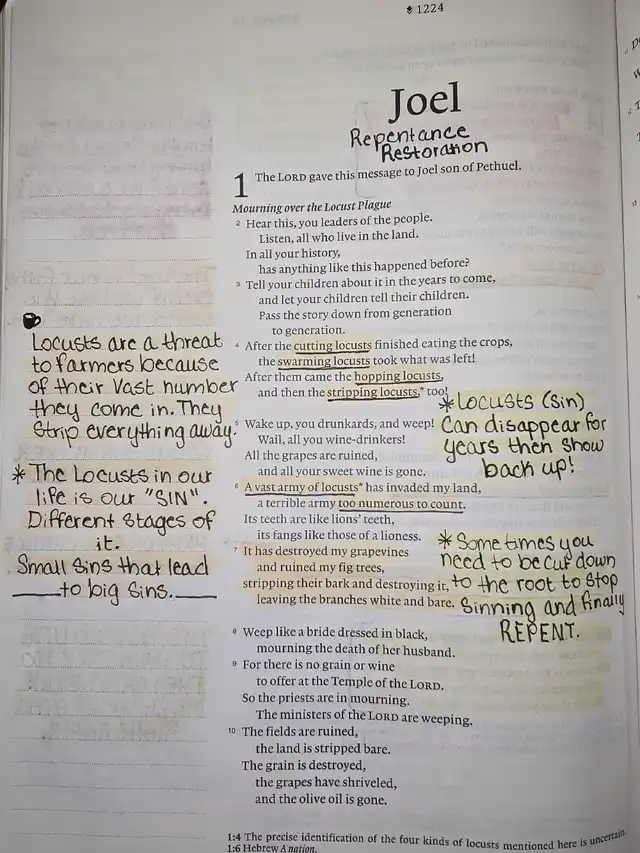 1224
Joel
Repentance
Restoration
1 The LORD gave this message to Joel son of Pethuel.
Mourning over the Locust Plague
2 Hear this, you leaders of the people.
Listen, all who live in the land.
In all your history,
has anything like this happened before?
3 Tell your children about it in the years to come,
and let your children tell their children.
Pass the story down from generation
to generation.
4 After the cutting locusts finished eating the crops,
the swarming locusts took what was left!
After them came the hopping locusts,
and then the stripping locusts,* too!
5 Wake up, you drunkards, and weep!
Wail, all you wine-drinkers!
All the grapes are ruined,
and all your sweet wine is gone.
6 A vast army of locusts* has invaded my land,
a terrible army too numerous to count.
Its teeth are like lions' teeth,
its fangs like those of a lioness.
7 It has destroyed my grapevines
and ruined my fig trees,
stripping their bark and destroying it,
leaving the branches white and bare.
8 Weep like a bride dressed in black,
mourning the death of her husband.
9 For there is no grain or wine
to offer at the Temple of the LORD.
So the priests are in mourning.
The ministers of the LORD are weeping.
10 The fields are ruined,
the land is stripped bare.
The grain is destroyed,
the grapes have shriveled,
and the olive oil is gone.
1:4 The precise identification of the four kinds of locusts mentioned here is uncertain.
1:6 Hebrew A nation.
Locusts are a threat
to farmers because
of their vast number
they come in. They
Strip everything away.
* The Locusts in our
life is our "SIN".
Different stages of
it.
Small sins that lead
to big sins.
* LOCUSTS (Sin)
Can disappear for
years then show
back up!
* Sometimes you
need to be cut down
to the root to stop
Sinning and finally
REPENT.